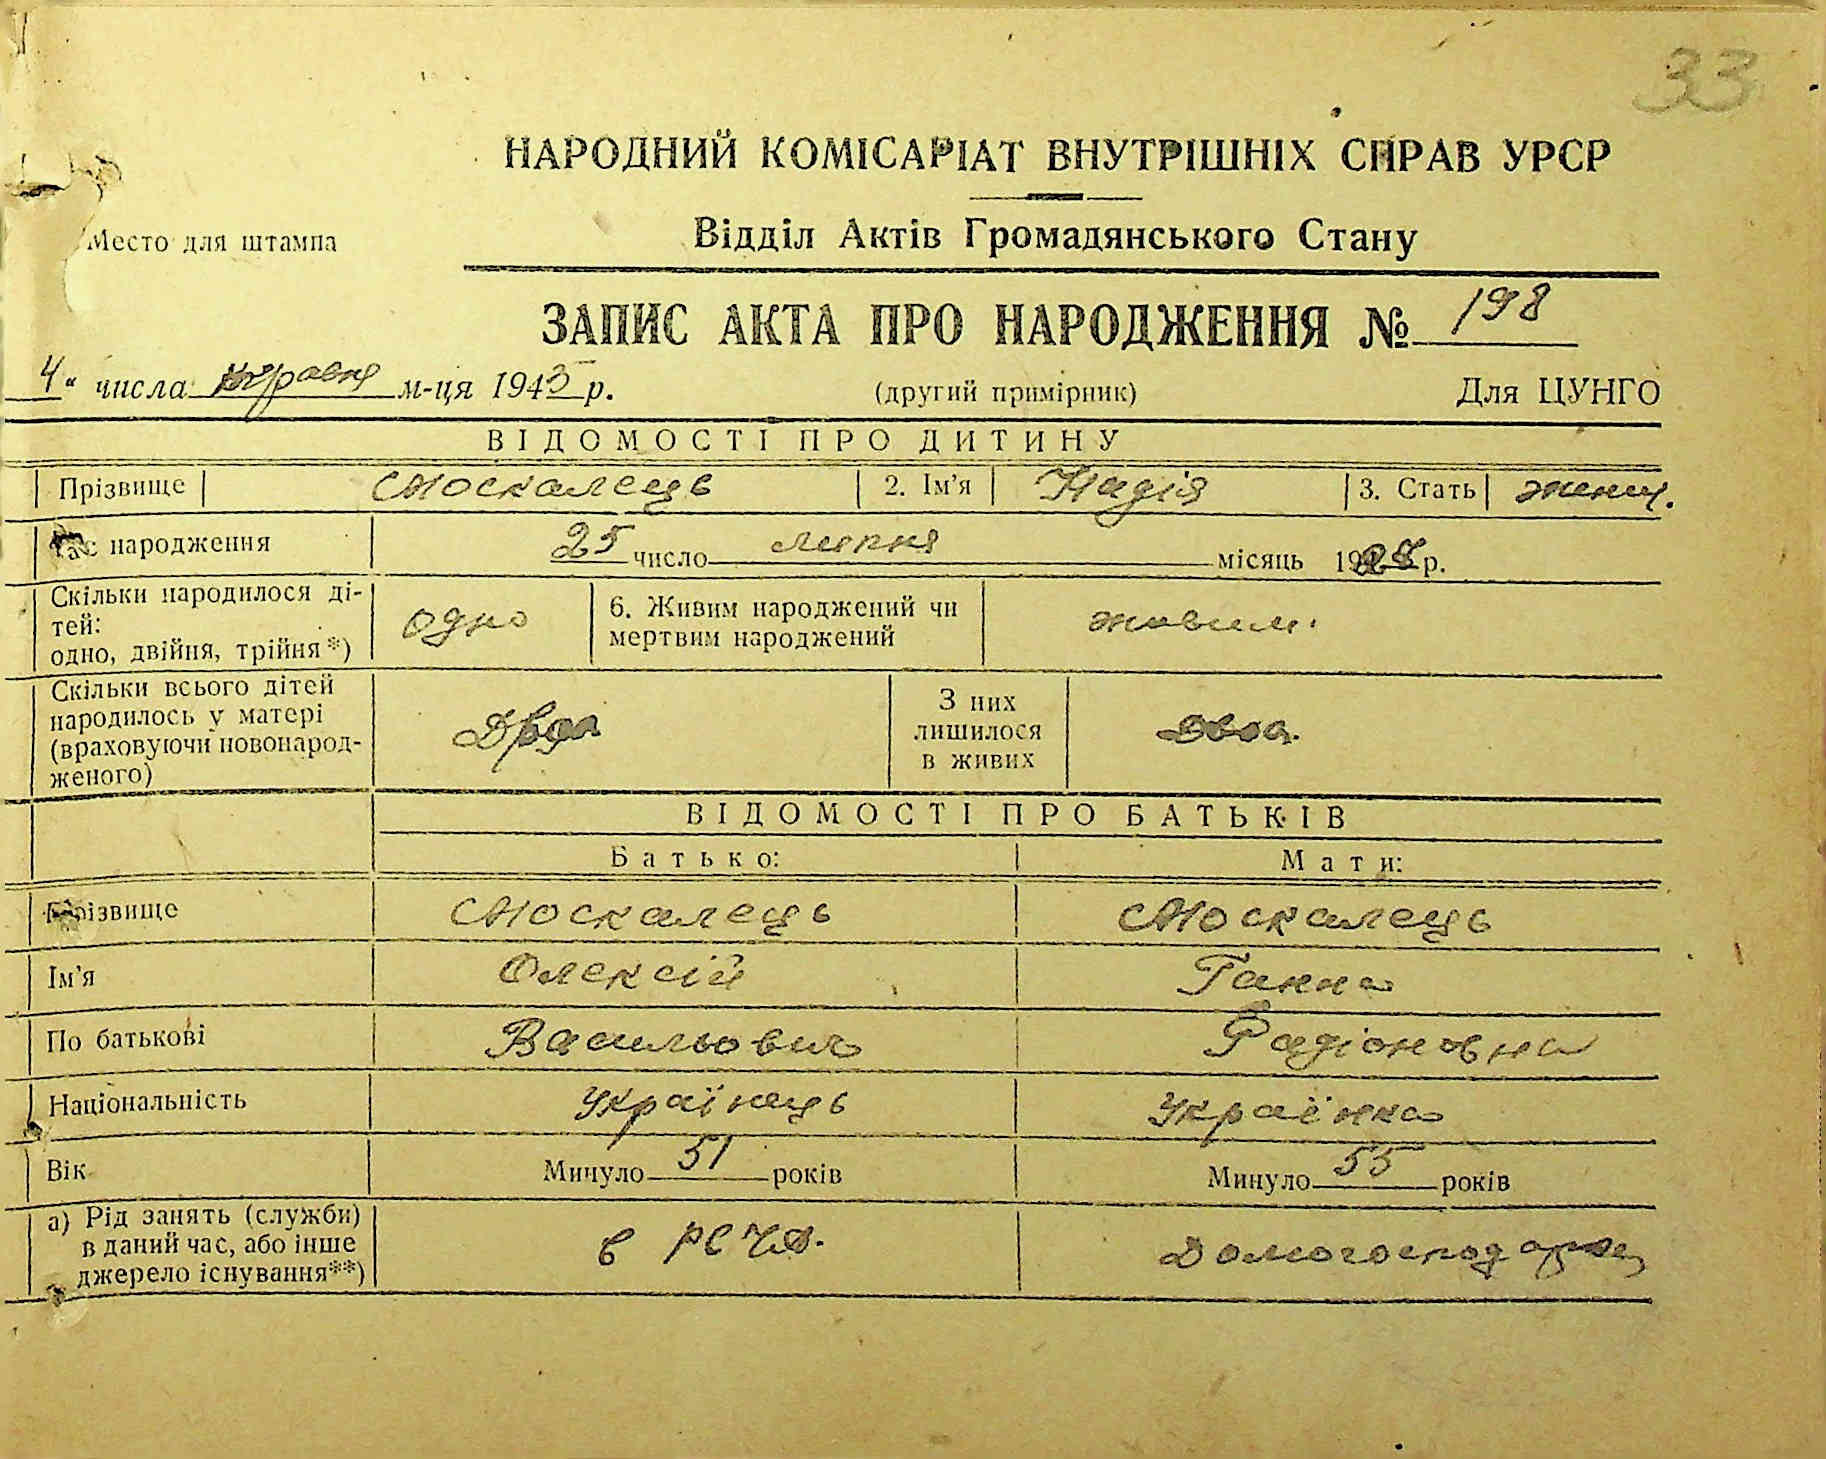 33
НАРОДНИЙ КОМІСАРІАТ ВНУТРІШНІХ СПРАВ УРСР
Место для штампа
Відділ Актів Громадянського Стану
ЗАПИС АКТА ПРО НАРОДЖЕННЯ № 198
4 " числа травня м-ця 1945 р. (другий примірник) Для ЦУНГО
ВІДОМОСТІ ПРО ДИТИНУ
Прізвище Москалець 2. Ім'я Надія 3. Стать женщ.
Час народження 25 число липня місяць 19 р.
Скільки народилося ді-
тей:
одно, двійня, трійня*) одно 6. Живим народжений чи
мертвим народжений живим.
Скільки всього дітей
народилось у матері
(враховуючи новонарод-
женого) Двоя З них
лишилося
в живих двоя.
ВІДОМОСТІ ПРО БАТЬКІВ
Батько: Мати:
Прізвище Москалець Москалець
Ім'я Олексій Ганна
По батькові Васильович Радіоновна
Національність Українець Українка
Вік Минуло 51 років Минуло 55 років
а) Рід занять (служби)
в даний час, або інше
джерело існування**) в РСЧА. Домогосподарка